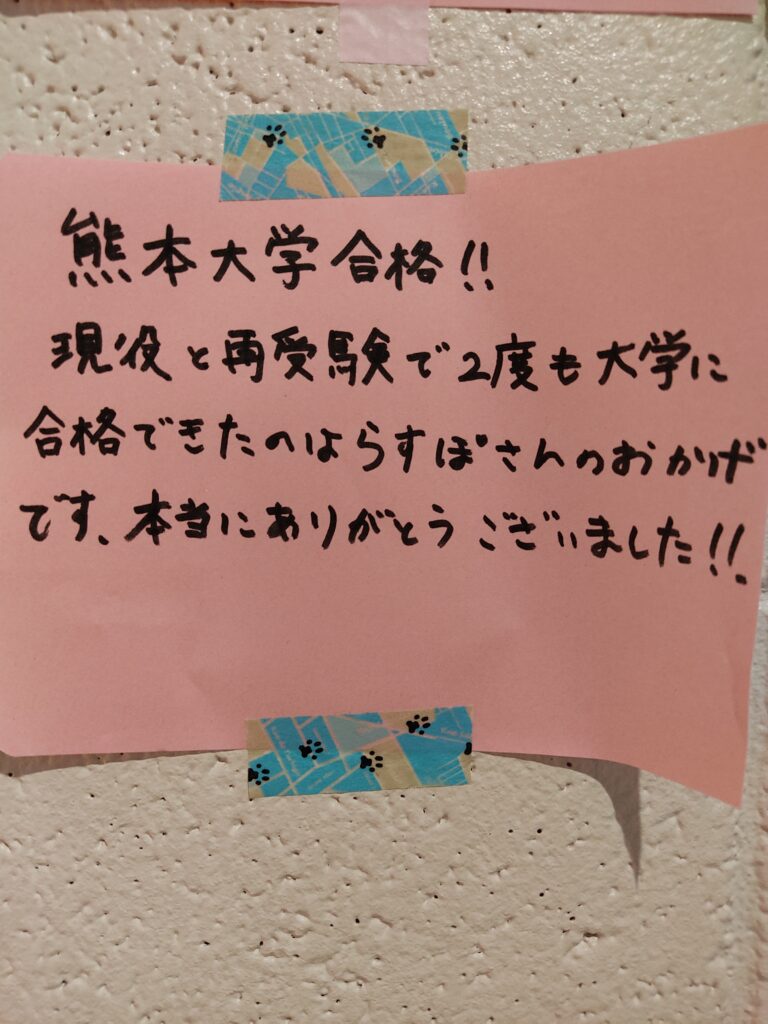 熊本大学合格!!
現役と再受験で2度も大学に
合格できたのはらすぽさんのおかげ
です、本当にありがとうございました!!